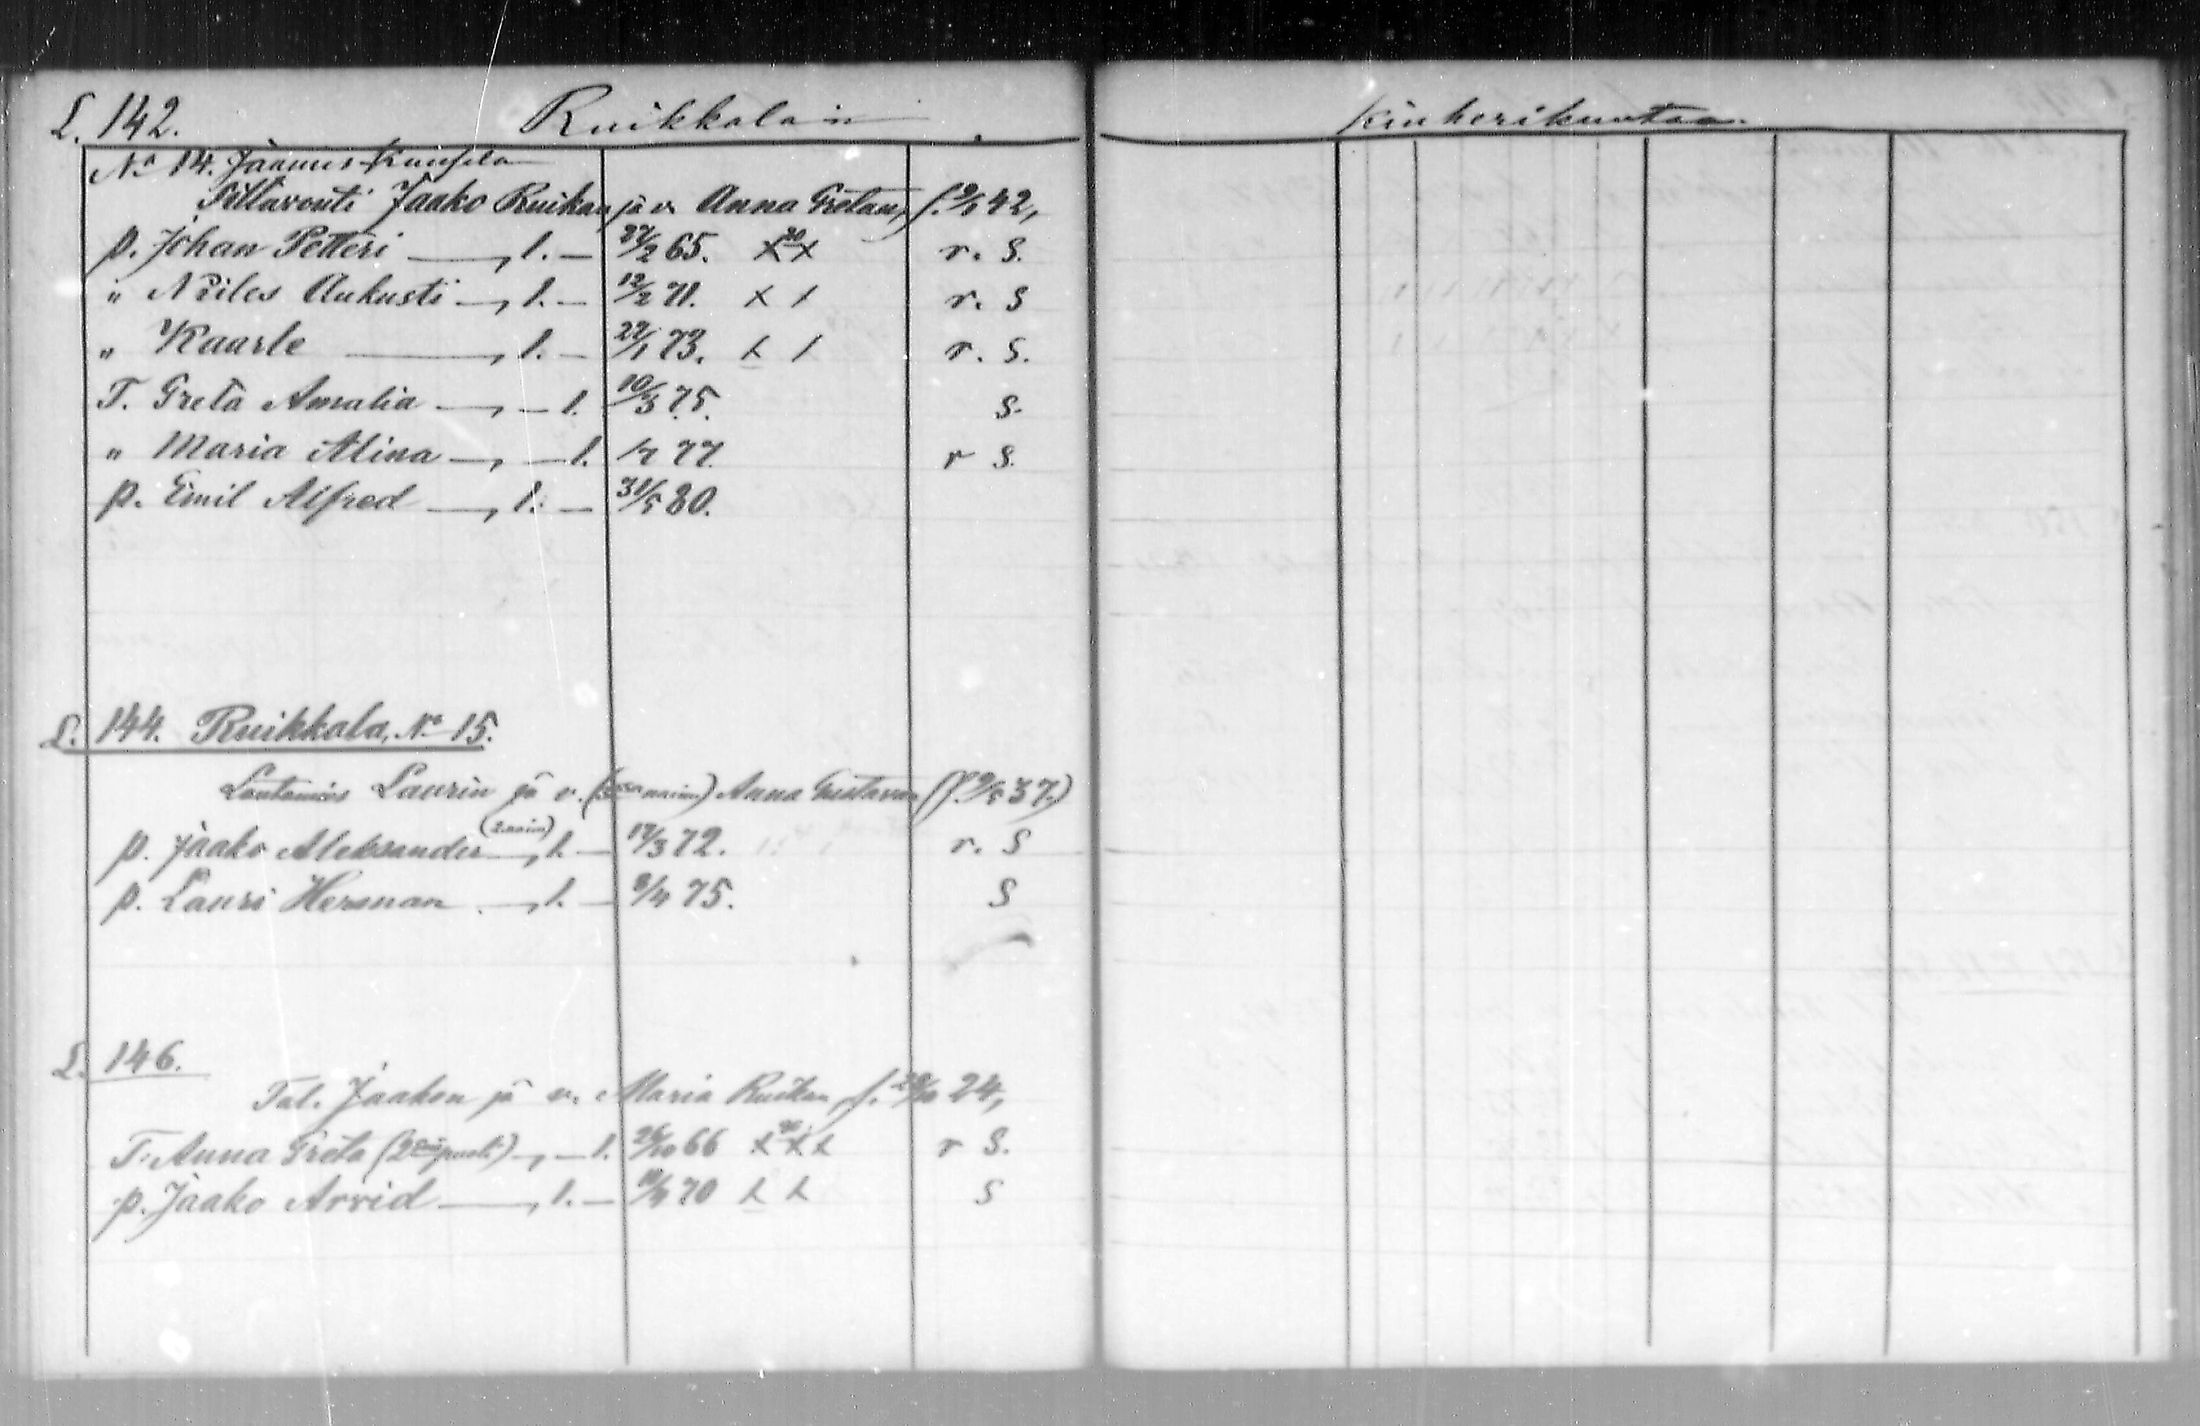 L. 142. Ruikkalan Kinkerikuntaa.
No 14. Jaamus-Kuusela
Siltavouti Jaako Ruikan ja v. Anna Gretan, f. 9/1 42,
p. Johan Petteri —„— l. — 27/2 65. X X r. S.
" Niiles Aukusti —„ l. — 12/2 71. X / r. S
" Kaarle —„ l. — 22/1 73. X / r. S.
T. Greta Amalia —„— l. 10/3 75. S.
" Maria Alina —„— l. 1/7 77. r S.
p. Emil Alfred —„ l. — 31/5 80.
L. 144. Ruikkala, No 15.
Lautamies Laurin ja v. Anna Gustavan (f. 9/5 37.)
p. Jaako Aleksander (2. naim) „ l. — 17/3 72. r. S
p. Lauri Herman „ l. — 8/4 75. S
L. 146.
Tal. Jaakon ja v. Maria Ruikan, f. 28/10 24,
T. Anna Greta —„— l. 26/10 66 X X X r S.
p. Jaako Arvid —„ l. — 70 X X S